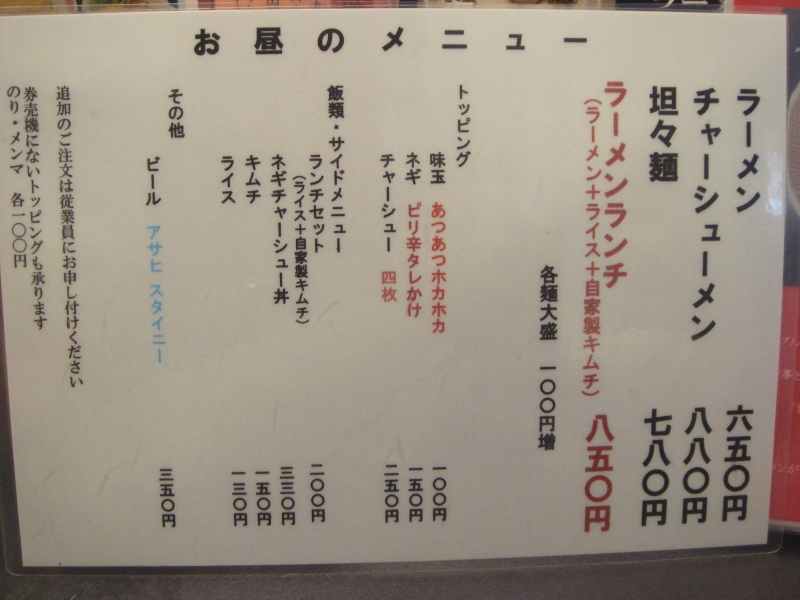 お昼のメニュー
ラーメン 六五〇円
チャーシューメン 八八〇円
坦々麺 七八〇円
ラーメンランチ 八五〇円
（ラーメン＋ライス＋自家製キムチ）
各麺大盛 一〇〇円増
トッピング
味玉 あつあつホカホカ 一〇〇円
ネギ ピリ辛タレかけ 一五〇円
チャーシュー 四枚 二五〇円
飯類・サイドメニュー
ランチセット 二〇〇円
（ライス＋自家製キムチ）
ネギチャーシュー丼 三三〇円
キムチ 一五〇円
ライス 一三〇円
その他
ビール アサヒ スタイニー 三五〇円
追加のご注文は従業員にお申し付けください
券売機にないトッピングも承ります
のり・メンマ 各一〇〇円